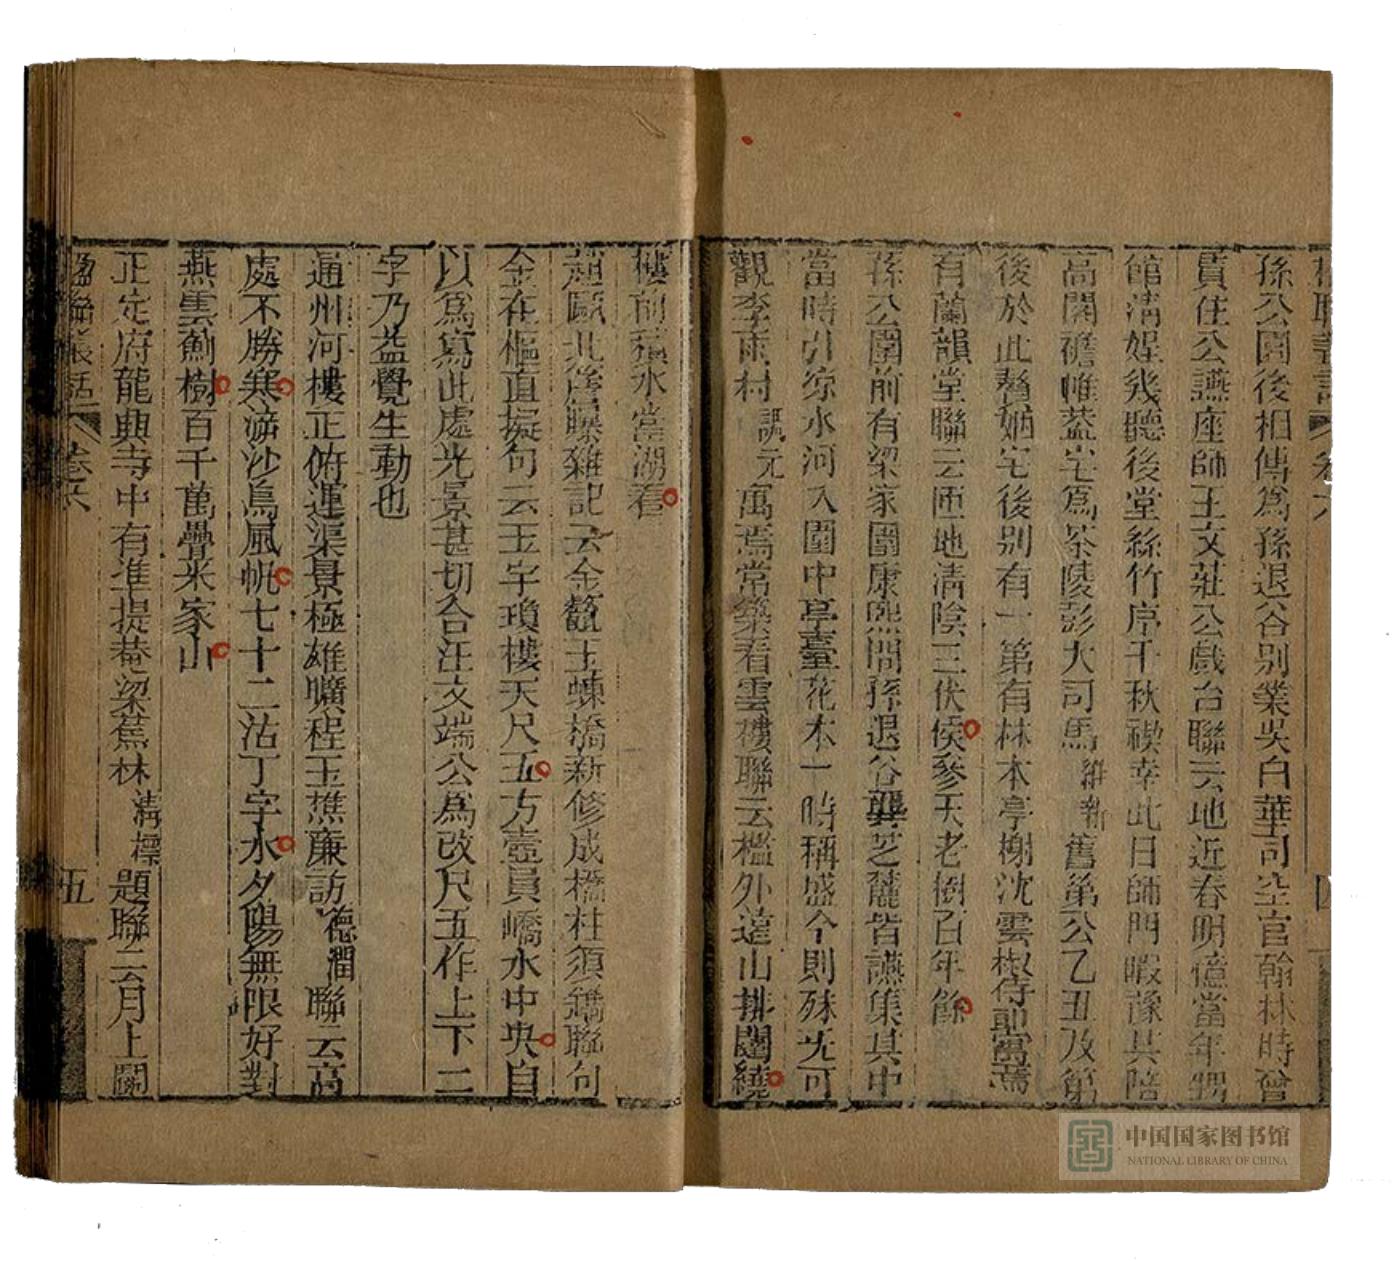 楹聯叢話 卷六 四
孫公園後相傳爲孫退谷别業吳白華司空官翰林時曾
賃住公讌座師王文莊公戲台聯云地近春明億當年甥
館清娛幾聽後堂絲竹序千秋禊幸此日師門暇豫具陪
高閈襜帷葢宅爲茶陵彭大司馬維新舊第公乙丑及第
後於此贅姻宅後别有一第有林木亭榭沈雲椒侍郎寓焉
有蘭韻堂聯云匝地清陰三伏候參天老樹百年餘
孫公園前有梁家園康熙間孫退谷龔芝麓皆讌集其中
當時引涼水河入園中亭臺花木一時稱盛今則殊无可
觀李雨村調元寓焉嘗築看雲樓聯云檻外遠山排闥繞
樓前積水當湖看
趙甌北簷曝雜記云金鼇玉蝀橋新修成橋柱須鐫聯句
余在樞直擬句云玉宇瓊樓天尺五方壺員嶠水中央自
以爲寫此處光景甚切合汪文端公爲改尺五作上下二
字乃益覺生動也
通州河樓正俯運渠景極雄曠程玉樵廉訪德潤聯云高
處不勝寒泝沙鳥風帆七十二沽丁字水夕陽無限好對
燕雲薊樹百千萬疊米家山
正定府龍興寺中有准提菴梁蕉林清標題聯云月上闌
楹聯叢話 卷六 五
中国国家图书馆
NATIONAL LIBRARY OF CHINA